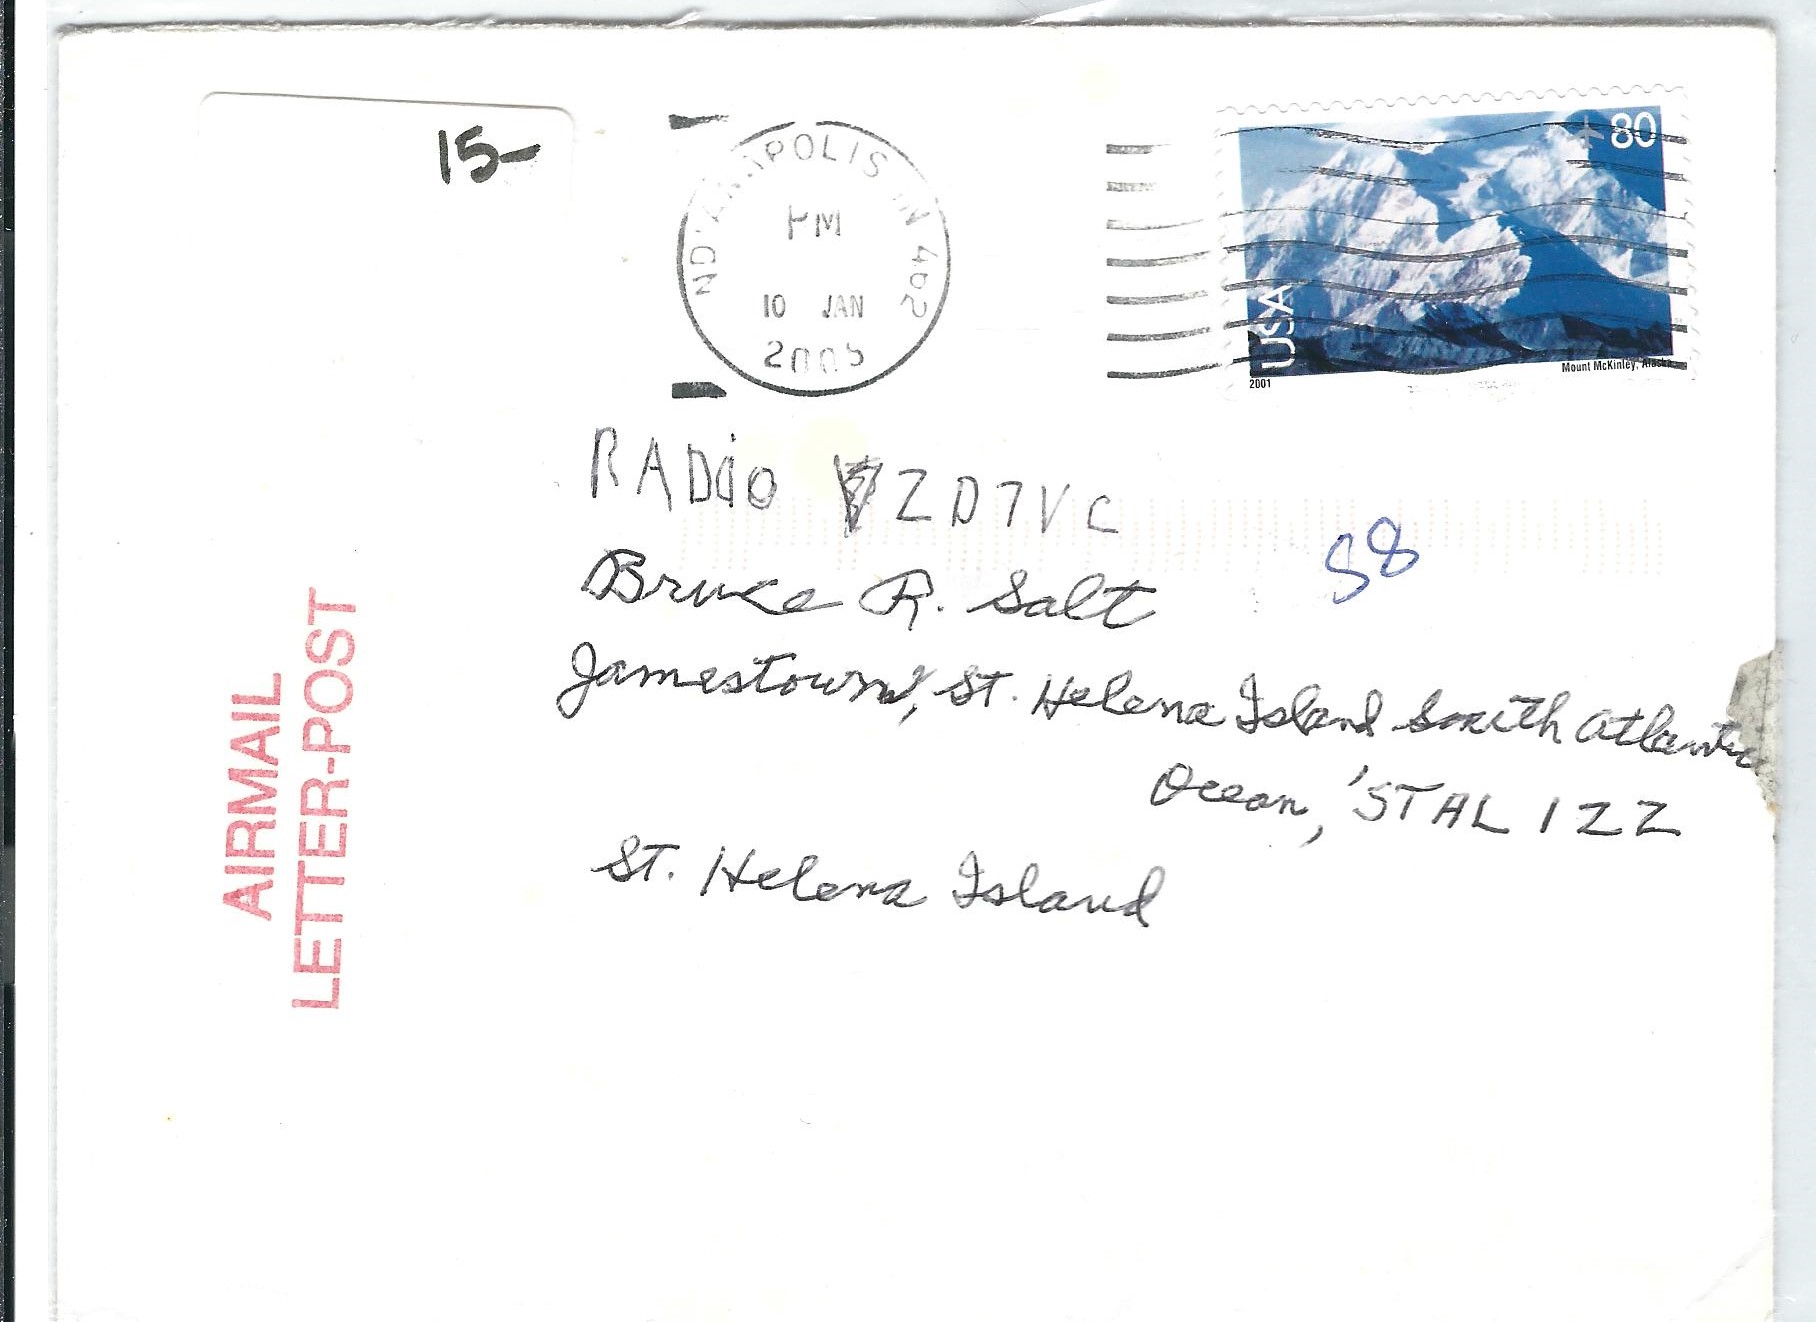 15-
INDIANAPOLIS IN 462
PM
10 JAN
2005
80
USA
2001
Mount McKinley, Alaska
RADiO ZD7VC
S8
Bruce R. Salt
Jamestown, St. Helena Island South Atlantic
Ocean, 'STAL 1ZZ
St. Helena Island
AIRMAIL
LETTER-POST